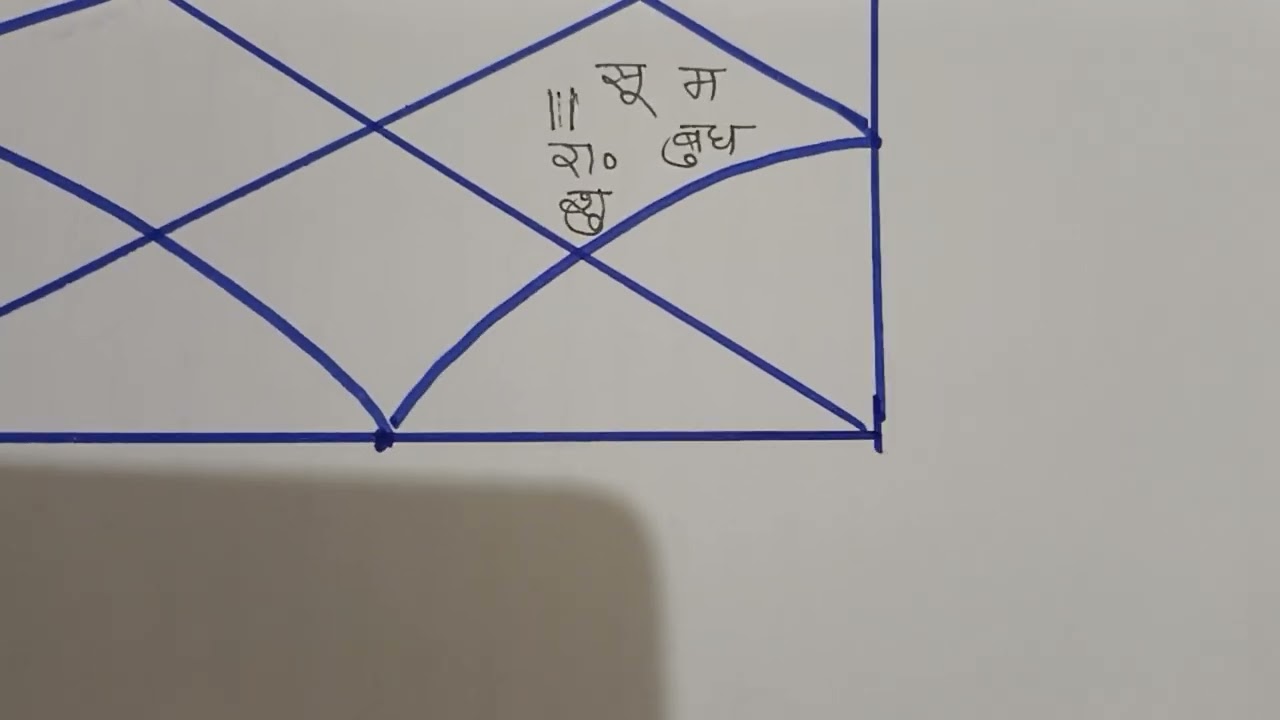 सू म
|||
रा० बुध